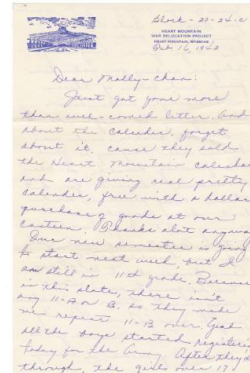 Block - 23-24-C
HEART MOUNTAIN
WAR RELOCATION PROJECT
HEART MOUNTAIN, WYOMING
Oct 16, 1942
Dear Molly-chan:
Just got your more
than well-comed letter. And
about the calendar, forget
about it, cause they sold
the Heart Mountain calendar
and are giving real pretty
calendar, free with a dollar
purchase of goods at our
canteen. Thanks alot anyway
Our new semester is going
to start next week, but I
am still in 11th grade. Because
in this state, there isn't
any 11-A or B, so they make
me repeat 11-B over.
all the boys started registering
today for the Army. After they are
through, the girls over 17